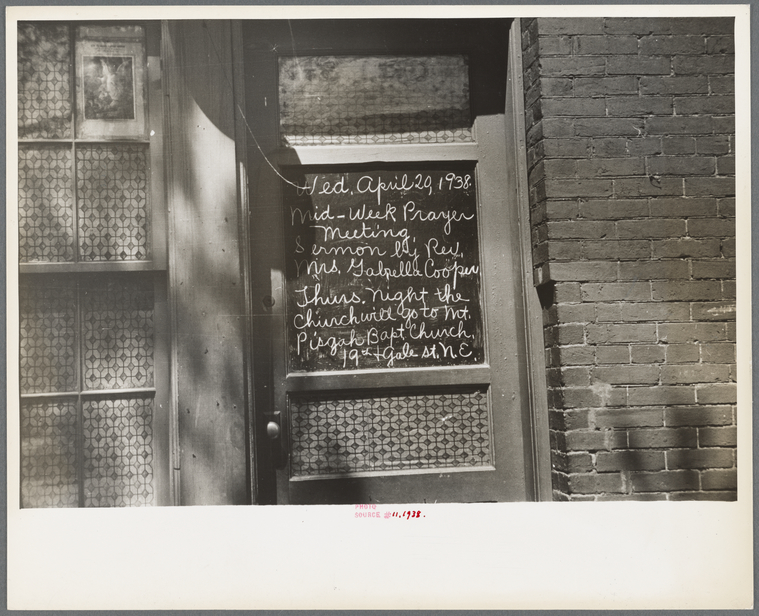 Wed. April 20, 1938.
Mid-Week Prayer
Meeting
Sermon by Rev.
Mrs. Galpella Cooper,
Thurs. Night the
Church will go to Mt.
Pisgah Bapt Church,
19th + Gale St. N.E.
PHOTO
SOURCE @ 11, 1938.